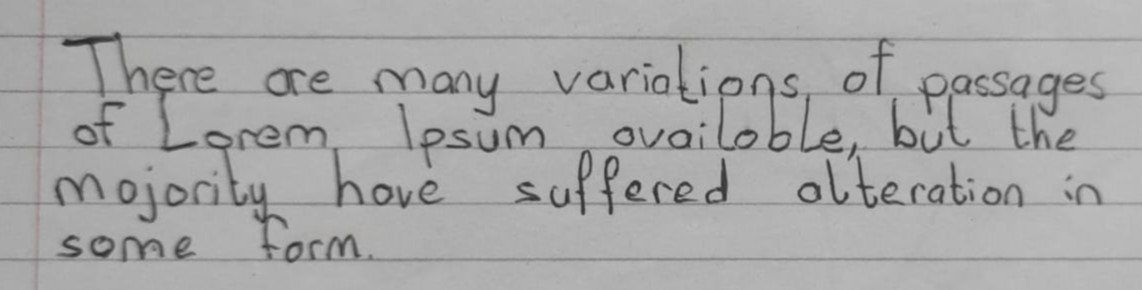 There are many variations of passages
of Lorem Ipsum available, but the
majority have suffered alteration in
some form.